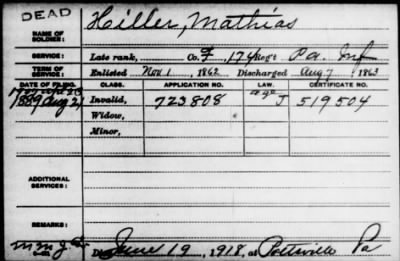 DEAD
Hiller, Mathias
NAME OF SOLDIER:
SERVICE: Late rank, Co. F, 174 Reg't Pa. Inf
TERM OF SERVICE: Enlisted Nov 1, 1862 Discharged Aug 7, 1863
DATE OF FILING. CLASS. APPLICATION NO. LAW. CERTIFICATE NO.
1889 Aug 21 Invalid, 723808 J 519504
Widow,
Minor,
ADDITIONAL SERVICES:
REMARKS:
Died June 19, 1918, at Pottsville Pa